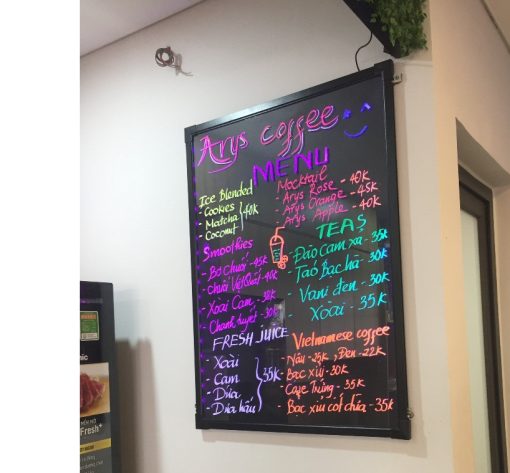 Arys coffee
MENU
Ice Blended
- Cookies
- Matcha } 40K
- Coconut
Smoothies
- Bơ chuối - 45K
- chuối Việt Quất - 40K
- Xoài Cam - 30K
- Chanh tuyết - 30K
FRESH JUICE
- Xoài
- Cam } 35K
- Dứa
- Dưa hấu
Mocktail
- Arys Rose - 40K
- Arys Orange - 45K
- Arys Apple - 40K
TEAS
- Đào cam xả - 35K
- Táo Bạc hà - 30K
- Vani đen - 30K
- Xoài - 35K
Vietnamese coffee
- Nâu - 25K, Đen - 22K
- Bạc xỉu - 30K
- Cafe Trứng - 35K
- Bạc xỉu cốt dừa - 35K
nic
Fresh+